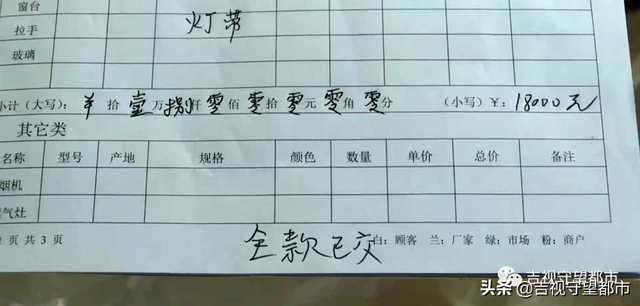 窗台
拉手 灯带
玻璃
小计（大写）：¥ 拾 壹 万 捌 仟 零 佰 零 拾 零 元 零 角 零 分 （小写）¥：18000元
其它类
名称 型号 产地 规格 颜色 数量 单价 总价 备注
烟机
气灶
页 共 3 页 全款已交 白：顾客 兰：厂家 绿：市场 粉：商户
吉视守望都市
头条 @吉视守望都市